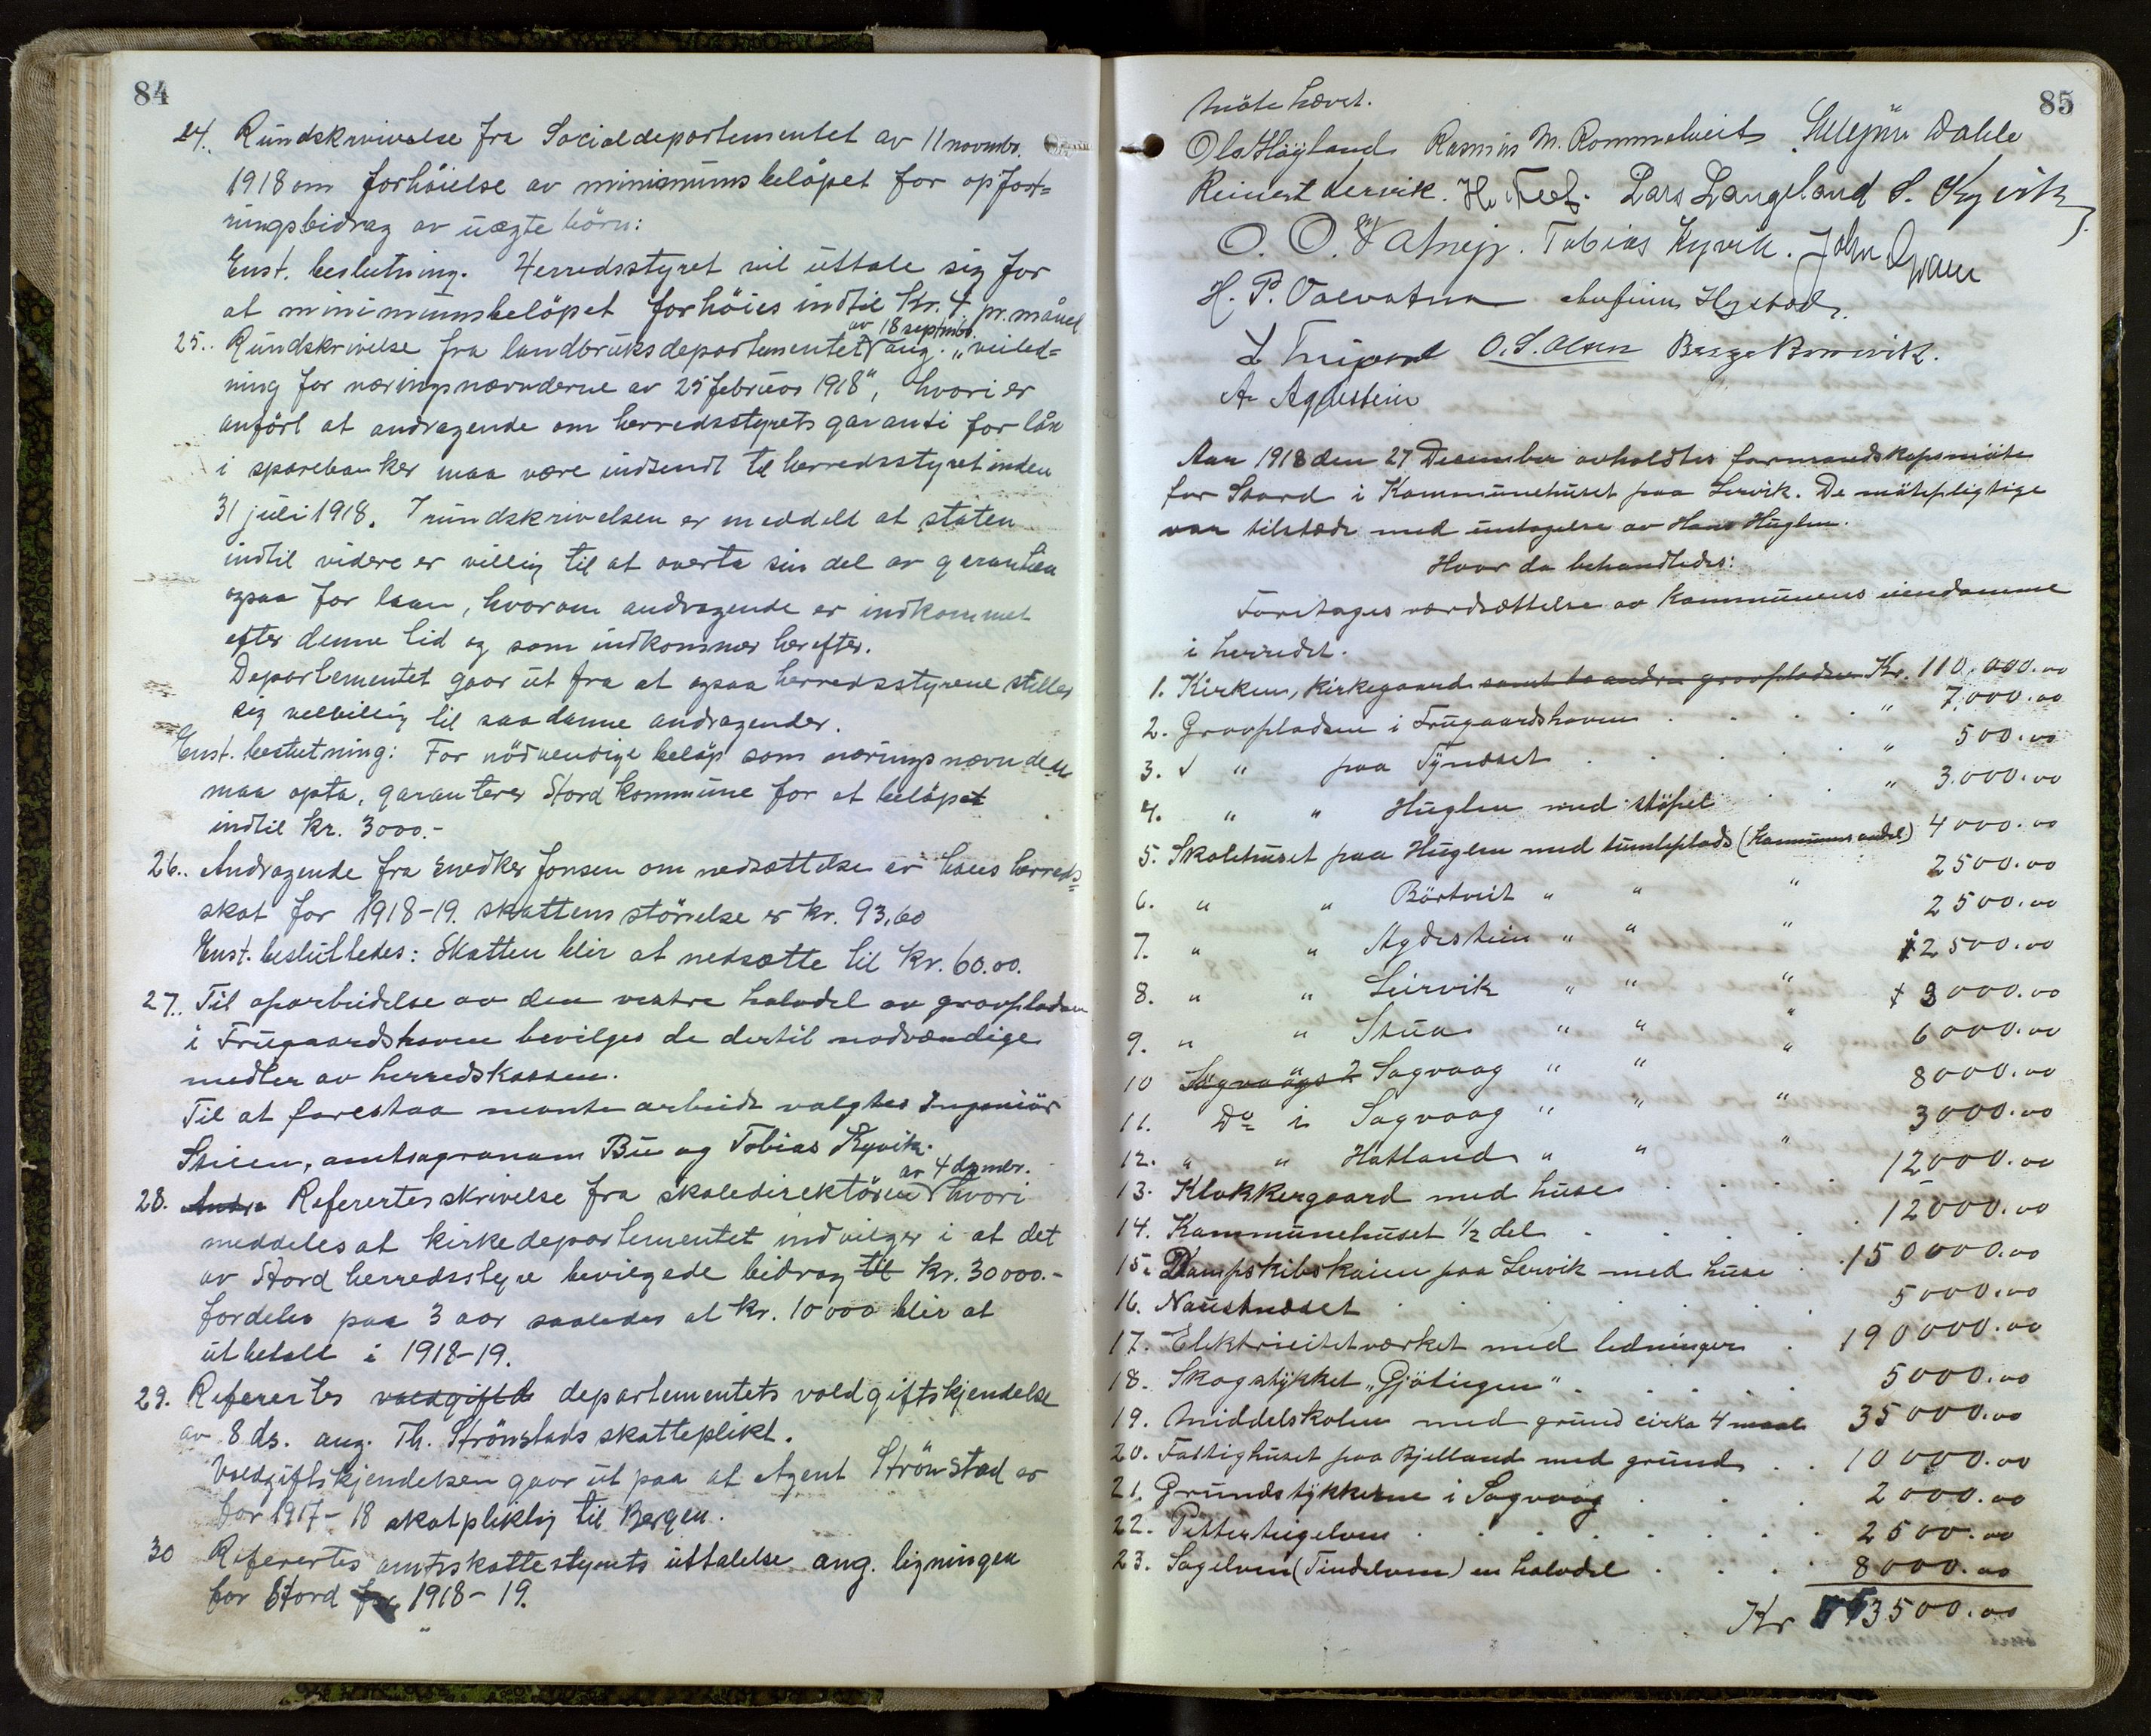 84
24. Rundskrivelse fra Socialdepartementet av 11 novmbr.
1918 om forhöielse av minimumsbelöpet for opfost-
ringsbidrag av uægte börn:
Enst. beslutning. Herredsstyret vil uttale sig for
at minimumsbelöpet forhöies indtil kr. 4. pr. måned
av 18 septmbr.
25. Rundskrivelse fra landbruksdepartementet ang. „veiled-
ning for næringsnævnderne av 25 februar 1918", hvori er
anfört at andragende om herredsstyrets garanti for lån
i sparebanker maa være indsendt til herredsstyret inden
31 juli 1918. I rundskrivelsen er meddelt at staten
indtil videre er villig til at overta sin del av garantien
ogsaa for laan, hvorom andragende er indkommet
efter denne tid og som indkommer herefter.
Departementet gaar ut fra at ogsaa herredsstyrene stiller
sig velvillig til saadanne andragender.
Enst. beslutning: For nödvendige beløp som næringsnævnden
maa opta, garanterer Stord kommune for et belöpet
indtil kr. 3000.-
26.. Andragende fra snedker Jonsen om nedsættelse av hans herreds-
skat for 1918-19. skattens störrelse er kr. 93,60
Enst. besluttedes: Skatten blir at nedsætte til kr. 60.00.
27.. Til oparbeidelse av den vestre halvdel av gravpladsen
i Frugaardshaven bevilges de dertil nødvændige
midler av herredskassen.
Til at forestaa nevnte arbeide valgtes Ingeniör
Steien, amtsagronom Bu og Tobias Kyvik.
av 4 dzmbr.
28. Andra Referertes skrivelse fra skoledirektören hvori
meddeles at kirkedepartementet indvilger i at det
av Stord herredsstyre bevilgede bidrag til kr. 30000.-
fordeles paa 3 aar saaledes at kr. 10000 blir at
utbetale i 1918-19.
29. Referertes voldgiftd departementets voldgiftskjendelse
av 8 ds. ang. Th. Strönstads skatteplikt.
Voldgiftskjendelsen gaar ut paa at Agent Strönstad er
for 1917-18 skatpliktig til Bergen.
30 Referertes amtsskattestyrets uttalelse ang. ligningen
for Stord for 1918-19.
85
Möte hævet.
Ola Höyland Rasmus M. Rommetveit Dahle
Reinert Lervik. Lars Langeland S. Kyvik
O. O. Tobias Kyvik. John
H. P. Valvatna Hystad.
O. S. Olsen Børge
A. Agdestein
Aar 1918 den 27 December avholdtes formandskapsmöte
for Stord i Kommunehuset paa Lervik. De mötepligtige
var tilstæde med undtagelse av Hans Huglen.
Hvor da behandledes:
Foretages værdsættelse av Kommunens eiendomme
i herredet.
1. Kirken, kirkegaard samt to andre gravpladser Kr. 110,000.00
2. Gravpladsen i Frugaardshaven . . . . " 7,000.00
3. " paa Tyndset . . . . " 500.00
4. " " Huglen med stöpel . . " 3.000.00
5. Skolehuset paa Huglen med tumleplads (Kommunens andel) 4000.00
6. " " Börtveit " " " 2500.00
7. " " Agdestein " " " 2500.00
8. " " Leirvik " " " 12500.00
9. " " Stua " " " 3000.00
10 Sagvaags " 2 Sagvaag " " " 6000.00
11. Do i Sagvaag " " " 8000.00
12. " " Hatland " " " 3000.00
13. Klokkergaard med huse . . . . 12000.00
14. Kommunehuset 1/2 del . . . . 12000.00
15. Dampskibskaien paa Lervik med huse . . 150000.00
16. Naustnæset . . . . . . 5000.00
17. Elektricitetværket med ledninger . 190000.00
18. Skogstykket „Gjöteigen" . . . . 5000.00
19. Middelskolen med grund cirka 4 maal 35000.00
20. Fattighuset paa Bjelland med grund . . 10000.00
21. Grundstykkerne i Sagvaag . . . 2000.00
22. Petterteigelven . . . . . . 2500.00
23. Sagelven (Tindelven) en halvdel . . . 8000.00
Kr 573500.00